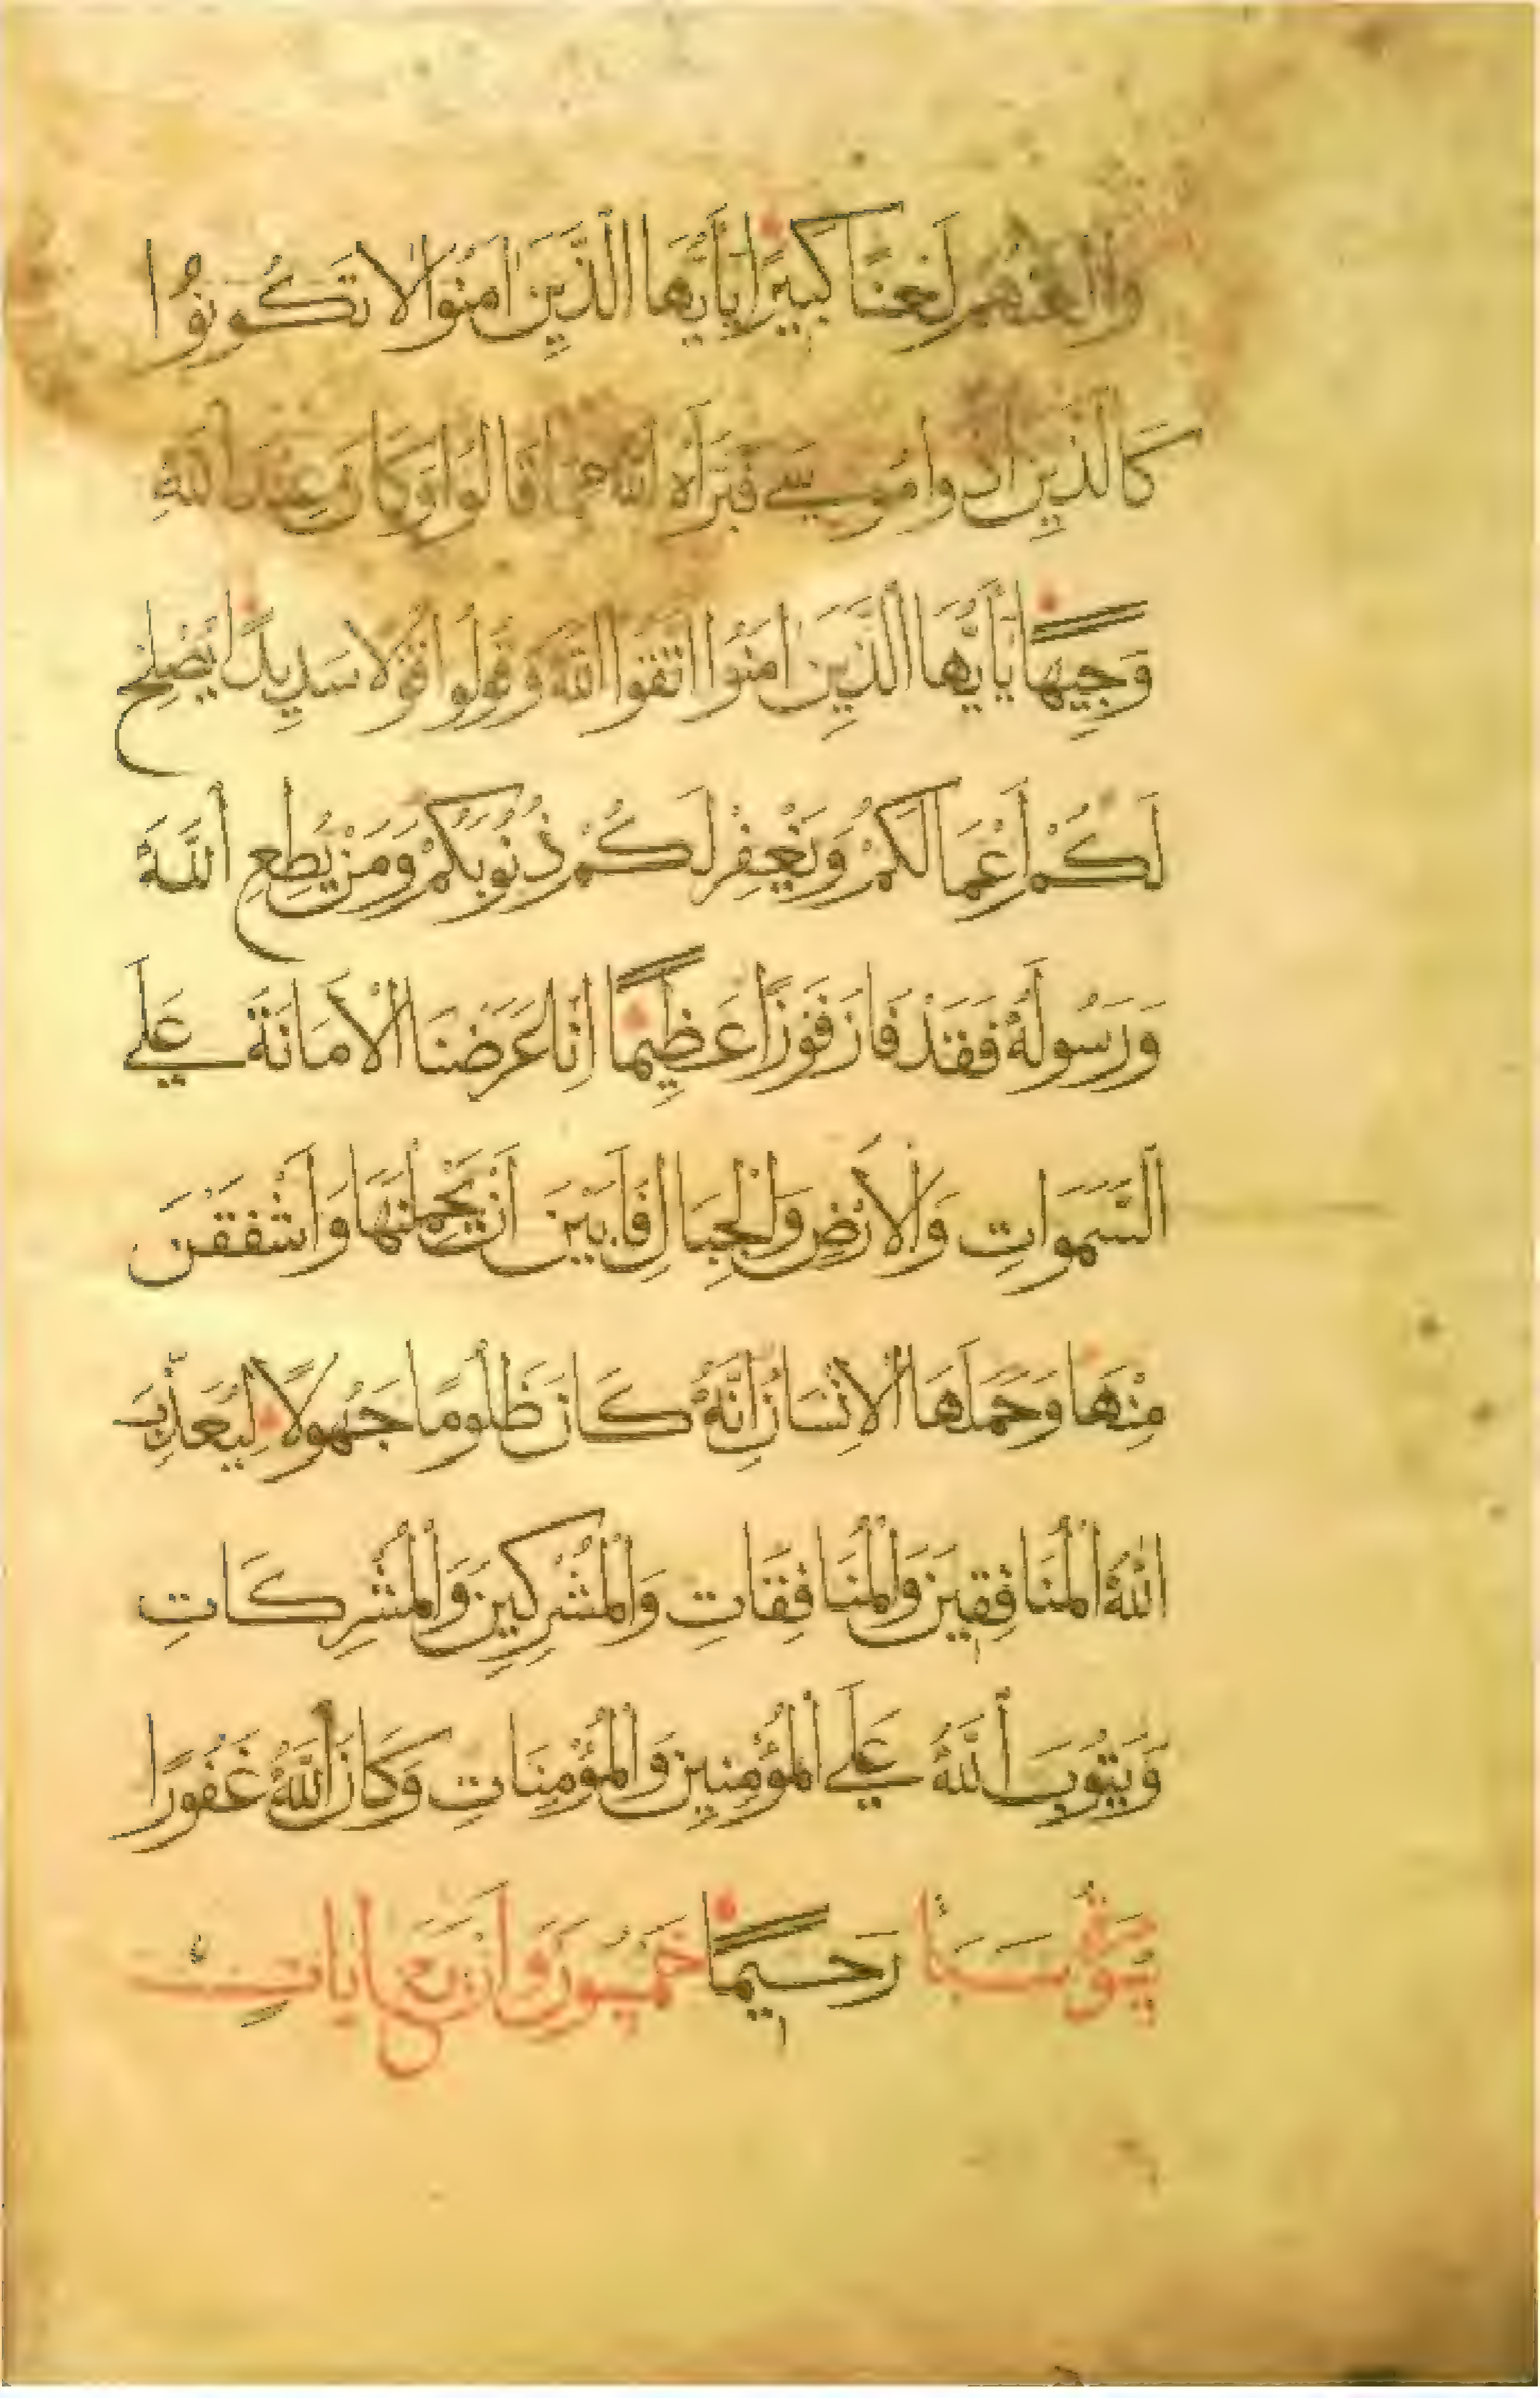 والعنهم لعنا كبيرا ياأيها الذين امنوا لا تكونوا
كالذين اذوا موسى فبرأه الله مما قالوا وكان عند الله
وجيها ياأيها الذين امنوا اتقوا الله وقولوا قولا سديدا يصلح
لكم أعمالكم ويغفر لكم ذنوبكم ومن يطع الله
ورسوله فقد فاز فوزا عظيما انا عرضنا الأمانة على
السموات والأرض والجبال فأبين أن يحملنها وأشفقن
منها وحملها الإنسان إنه كان ظلوما جهولا ليعذب
الله المنافقين والمنافقات والمشركين والمشركات
ويتوب الله على المؤمنين والمؤمنات وكان الله غفورا
سورة سبأ رحيما خمسون وأربع ايات